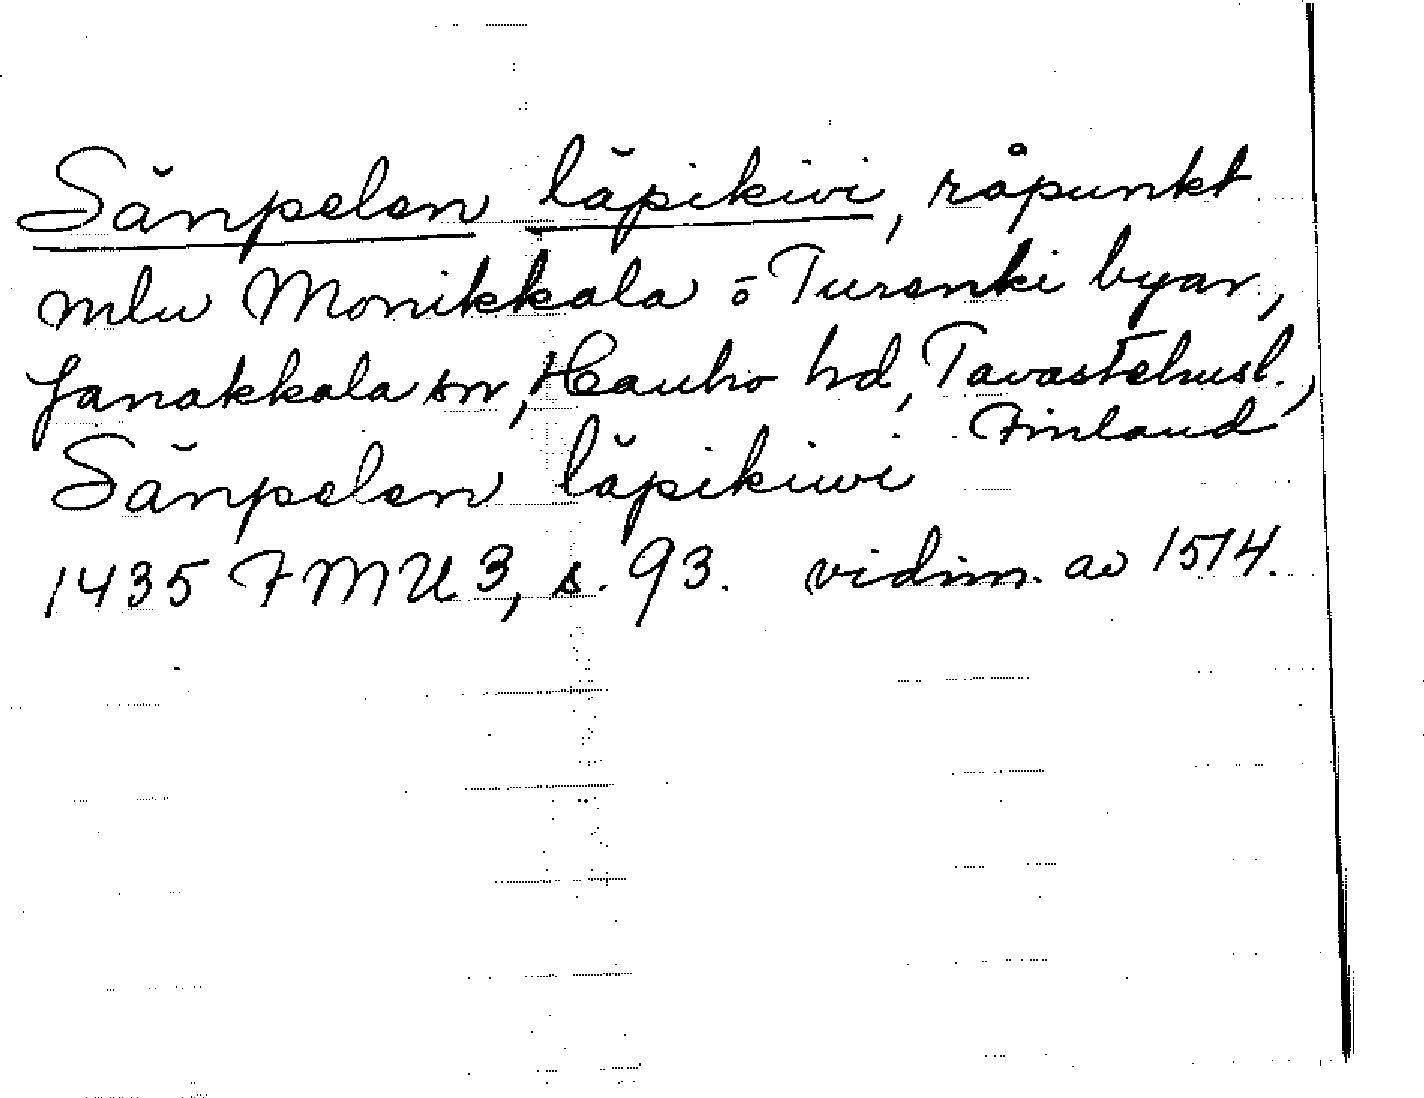 Sänpelen läpikiwi, råpunkt
mlu Monikkala o Turenki byar,
Janakkala sn, Hauho hd, Tavastehusl.,
Finland
Sänpelen läpikiwi
1435 FMU 3, s. 93. vidim. av 1514.